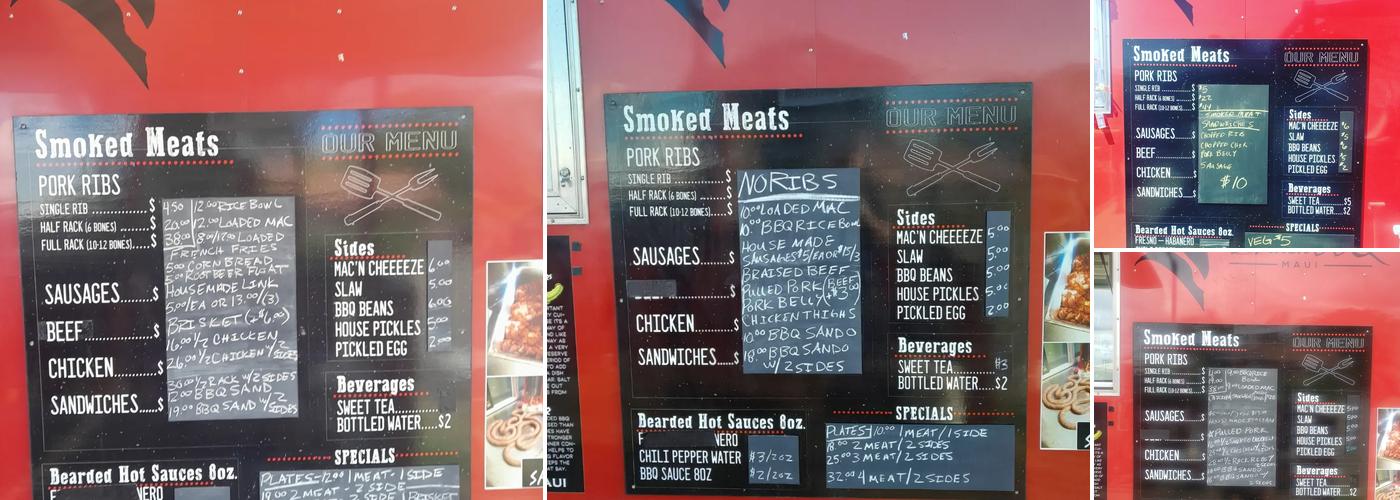 Smoked Meats
OUR MENU
PORK RIBS
SINGLE RIB $ 4.50
HALF RACK (6 BONES) $ 20.00
FULL RACK (10-12 BONES) $ 38.00
12.00 RICE BOWL
12.00 LOADED MAC
8.00/17.00 LOADED
FRENCH FRIES
5.00 CORN BREAD
ROOT BEER FLOAT
HOUSEMADE LINK
5.00/EA OR 13.00/(3)
BRISKET (+$6.00)
16.00 1/2 CHICKEN
26.00 1/2 CHICKEN W/2 SIDES
30.00 1/2 RACK W/2 SIDES
12.00 BBQ SAND
19.00 BBQ SAND W/2
SIDES
SAUSAGES $
BEEF $
CHICKEN $
SANDWICHES $
Sides
MAC'N CHEEEEZE 6.00
SLAW 5.00
BBQ BEANS 6.00
HOUSE PICKLES 5.00
PICKLED EGG 2.00
Beverages
SWEET TEA
BOTTLED WATER $2
SPECIALS
PLATES-12.00 1 MEAT - 1 SIDE
19.00 2 MEAT - 2 SIDE
Bearded Hot Sauces 8oz.
F NERO
Smoked Meats
OUR MENU
PORK RIBS
SINGLE RIB $
HALF RACK (6 BONES) $
FULL RACK (10-12 BONES) $
NO RIBS
10.00 LOADED MAC
10.00 BBQ RICE BOWL
HOUSE MADE
SAUSAGES $5/EA OR $15/3
BRAISED BEEF
PULLED PORK (BEEF
PORK BELLY +$3.00)
CHICKEN THIGHS
10.00 BBQ SANDO
18.00 BBQ SANDO
W/ 2 SIDES
SAUSAGES $
CHICKEN $
SANDWICHES $
Sides
MAC'N CHEEEEZE 5.00
SLAW 5.00
BBQ BEANS 5.00
HOUSE PICKLES 5.00
PICKLED EGG 2.00
Beverages
SWEET TEA $3
BOTTLED WATER $2
SPECIALS
PLATES-10.00 1 MEAT/1 SIDE
18.00 2 MEAT/2 SIDES
25.00 3 MEAT/2 SIDES
32.00 4 MEAT/2 SIDES
Bearded Hot Sauces 8oz.
F NERO
CHILI PEPPER WATER $3/2oz
BBQ SAUCE 8OZ $2/2oz
Smoked Meats
OUR MENU
PORK RIBS
SINGLE RIB $ $5
HALF RACK (6 BONES) $ $22
FULL RACK (10-12 BONES) $ $44
SMOKED MEAT
SANDWICHES
CHOPPED RIB
CHOPPED CHIK
PORK BELLY
SAUSAGE
$10
SAUSAGES $
BEEF $
CHICKEN $
SANDWICHES $
Sides
MAC'N CHEEEEZE
SLAW
BBQ BEANS
HOUSE PICKLES
PICKLED EGG
Beverages
SWEET TEA $5
BOTTLED WATER $2
Bearded Hot Sauces 8oz
FRESNO - HABANERO
SPECIALS
VEG $5
MAUI
Smoked Meats
OUR MENU
PORK RIBS
SINGLE RIB $
HALF RACK (6 BONES) $
FULL RACK (10-12 BONES) $
SAUSAGES $
CHICKEN $
SANDWICHES $
PULLED PORK
Sides
MAC'N CHEEEEZE
SLAW
BBQ BEANS
HOUSE PICKLES
PICKLED EGG
Beverages
SWEET TEA
BOTTLED WATER $2